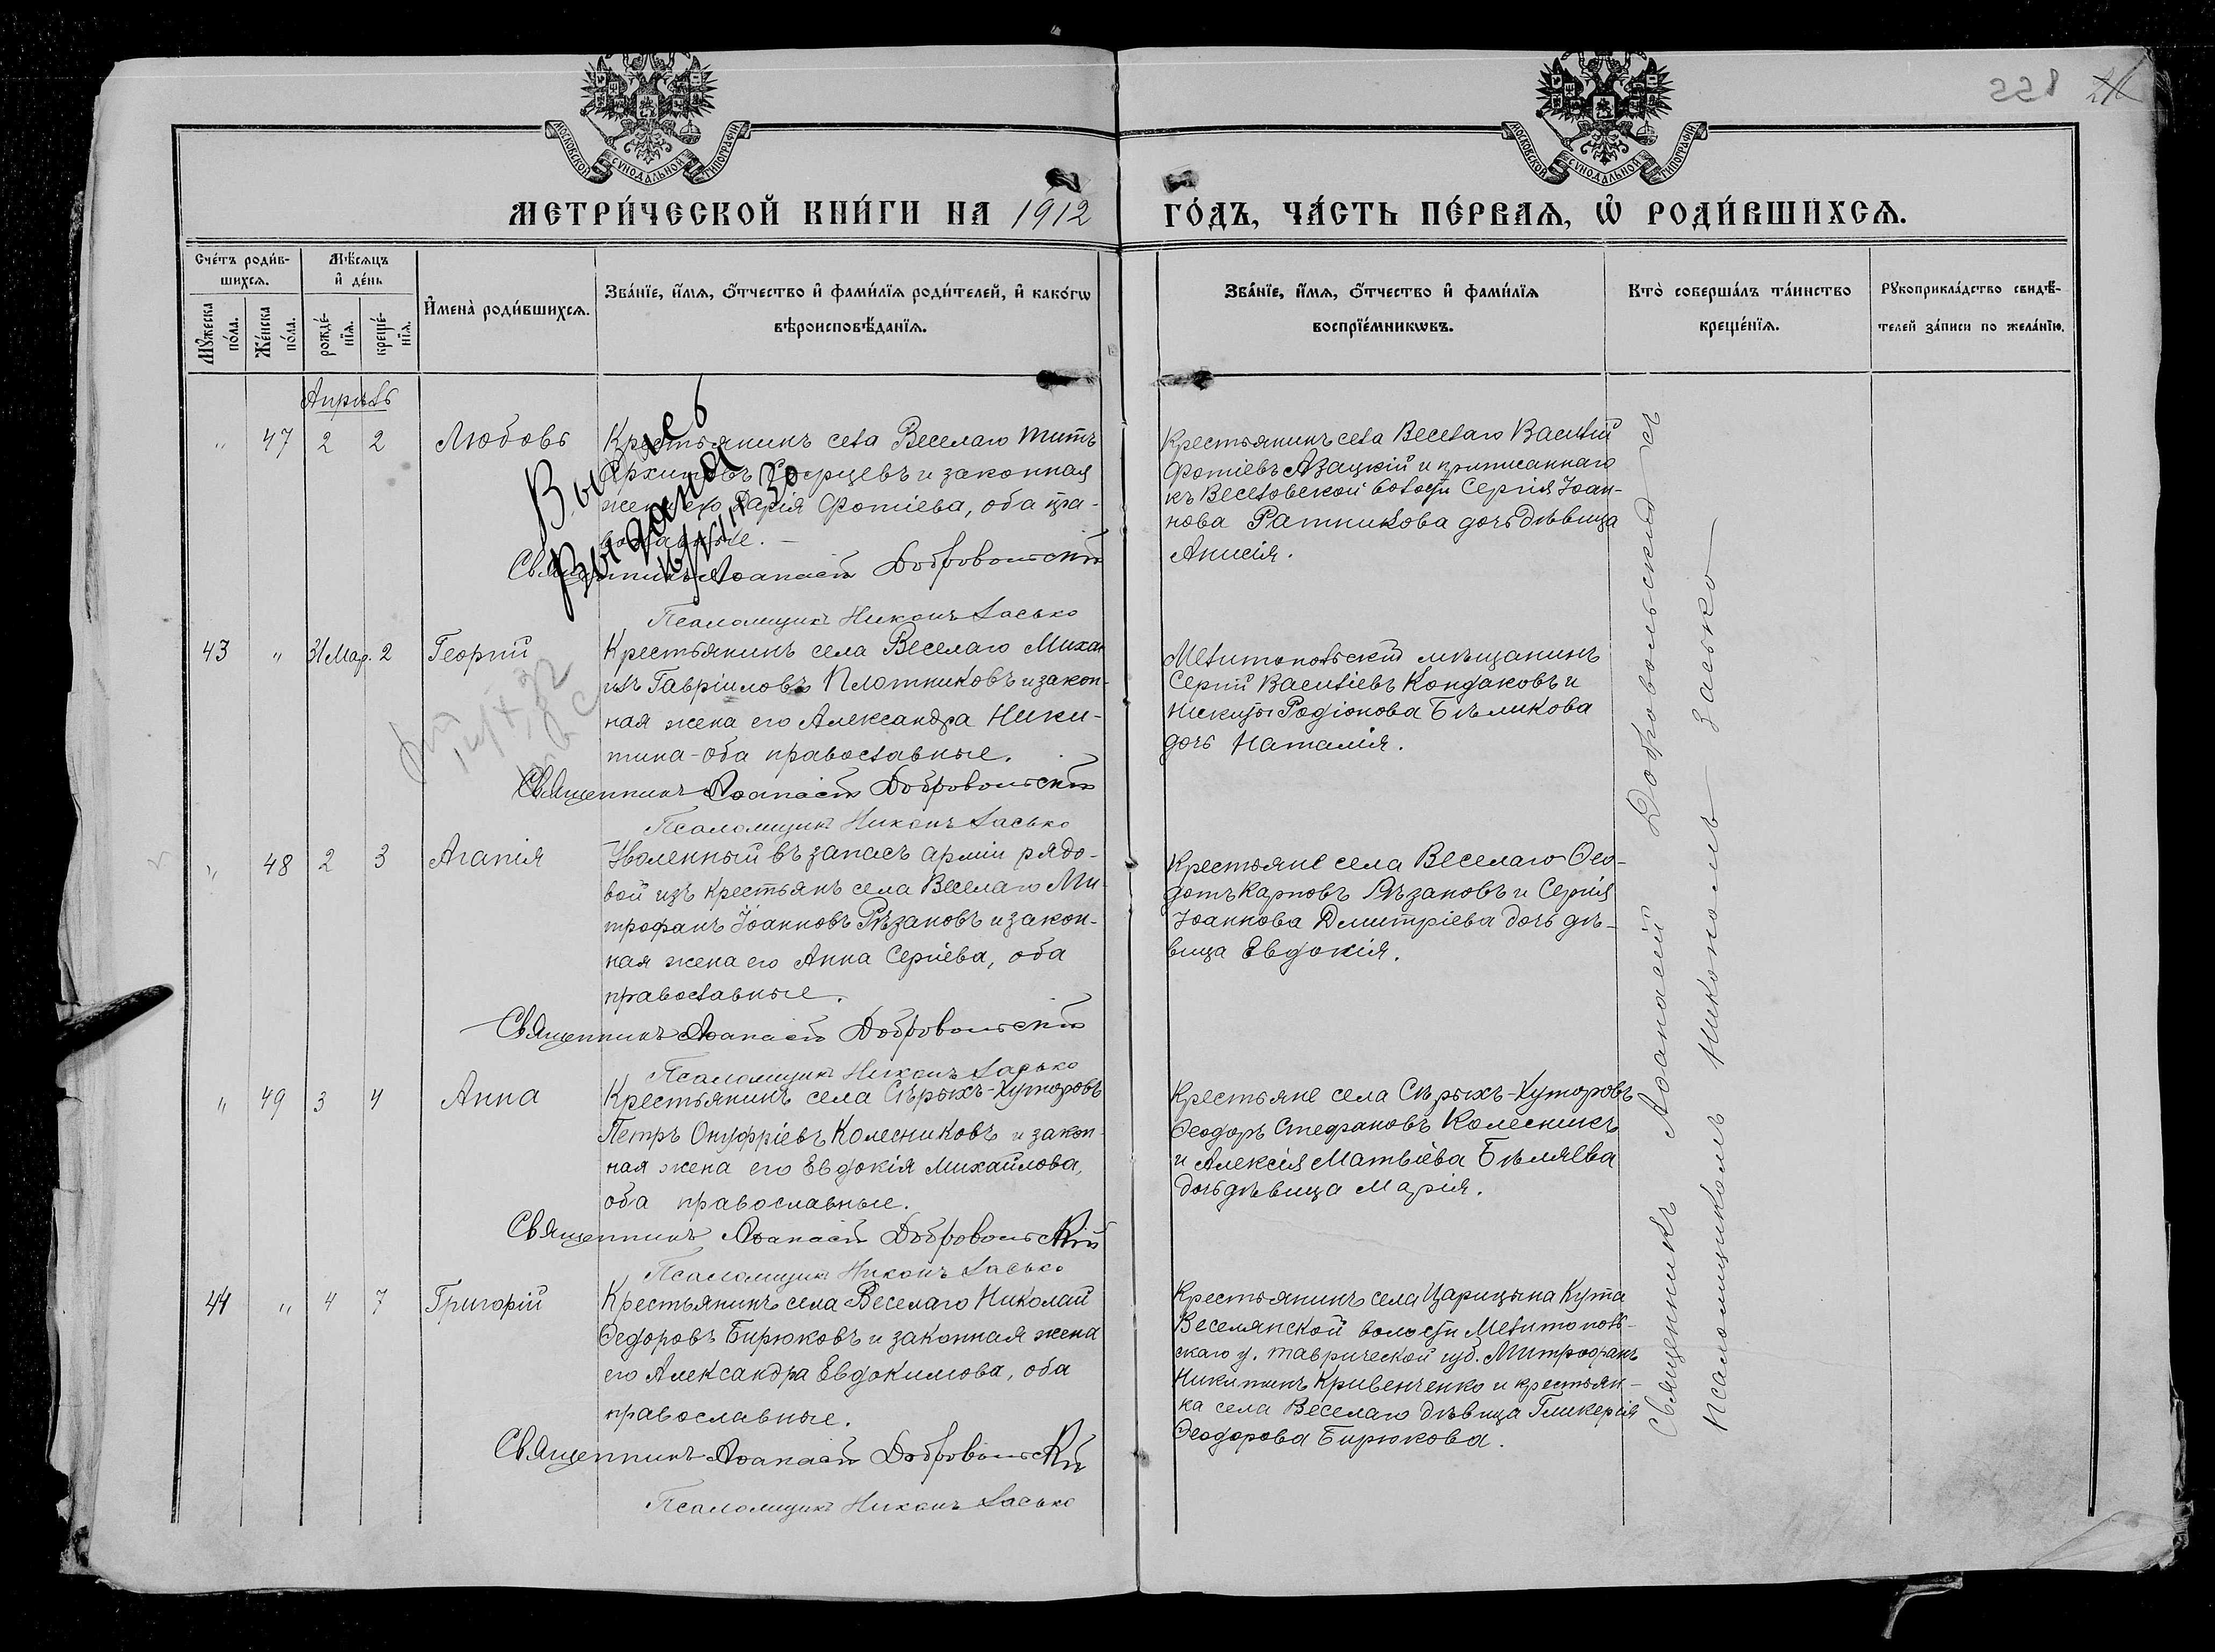 228
МОСКОВСКОЙ СѴНОДАЛЬНОЙ ТИПОГРАФІИ
МОСКОВСКОЙ СѴНОДАЛЬНОЙ ТИПОГРАФІИ
МЕТРИ́ЧЕСКОЙ КНИ́ГИ НА 1912
ГО́ДЪ, ЧА́СТЬ ПЕ́РВАЯ, Ѡ РОДИ́ВШИХСЯ.
Сче́тъ роди́в-
шихся.
Мꙋ́жеска по́ла.
Же́нска по́ла.
Мѣ́сяцъ
и҆ де́нь
рожде́-
нїя.
креще́-
нїя.
И҆мена̀ роди́вшихся.
Зва́нїе, и҆́мя, ѻ҆́тчество и҆ фами́лїя роди́телей, и҆ како́гѡ
вѣроисповѣ́данїя.
Зва́нїе, и҆́мя, ѻ҆́тчество и҆ фами́лїя
воспрїе́мникѡвъ.
Кто̀ соверша́лъ та́инство
креще́нїя.
Рꙋкоприкла́дство свидѣ́-
телей за́писи по жела́нїю.
Апрѣль
" 47 2 2 Любовь
Крестьянинъ села Веселаго Титъ
и законная
жена его Дарія Фотіева, оба пра-
вославные.
Священникъ Аѳанасій Добровольскій
Псаломщикъ Никонъ Засько
Крестьянинъ села Веселаго Василій
Фотіевъ Азацкій и приписаннаго
къ Веселовской волости Сергія Іоан-
нова Ратникова дочь дѣвица
Анисія.
Выдана
43 " 31 Мар. 2 Георгій
Крестьянинъ села Веселаго Миха-
илъ Гавріиловъ Плотниковъ и закон-
ная жена его Александра Ники-
тина - оба православные.
Священникъ Аѳанасій Добровольскій
Псаломщикъ Никонъ Засько
Мелитопольскій мѣщанинъ
Сергій Василіевъ Кондаковъ и
Никиты Родіонова Бѣликова
дочь Наталія.
" 48 2 3 Агапія
Уволенный въ запасъ арміи рядо-
вой изъ крестьянъ села Веселаго Ми-
трофанъ Іоанновъ Рѣзановъ и закон-
ная жена его Анна Сергіева, оба
православные.
Священникъ Аѳанасій Добровольскій
Псаломщикъ Никонъ Засько
Крестьяне села Веселаго Ѳео-
дотъ Карповъ Рѣзановъ и Сергія
Іоаннова Димитріева дочь дѣ-
вица Евдокія.
" 49 3 4 Анна
Крестьянинъ села Сѣрыхъ-Хуторовъ
Петръ Онуфріевъ Колесниковъ и закон-
ная жена его Евдокія Михайлова,
оба православные.
Священникъ Аѳанасій Добровольскій
Псаломщикъ Никонъ Засько
Крестьяне села Сѣрыхъ-Хуторовъ
Ѳеодоръ Стефановъ Колесникъ
и Алексія Матвіева Бѣляева
дочь дѣвица Марія.
44 " 4 7 Григорій
Крестьянинъ села Веселаго Николай
Ѳедоровъ Бирюковъ и законная жена
его Александра Евдокимова, оба
православные.
Священникъ Аѳанасій Добровольскій
Псаломщикъ Никонъ Засько
Крестьянинъ села Царицына Кута
Веселянской волости Мелитополь-
скаго у. Таврической губ. Митрофанъ
Никитинъ Кривенченко и крестьян-
ка села Веселаго дѣвица Гликерія
Ѳеодорова Бирюкова.
Священникъ Аѳанасій Добровольскій съ
Псаломщикомъ Никономъ Засько